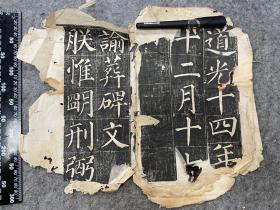 道光十四年
十二月十七
諭葬碑文
朕惟明刑弼